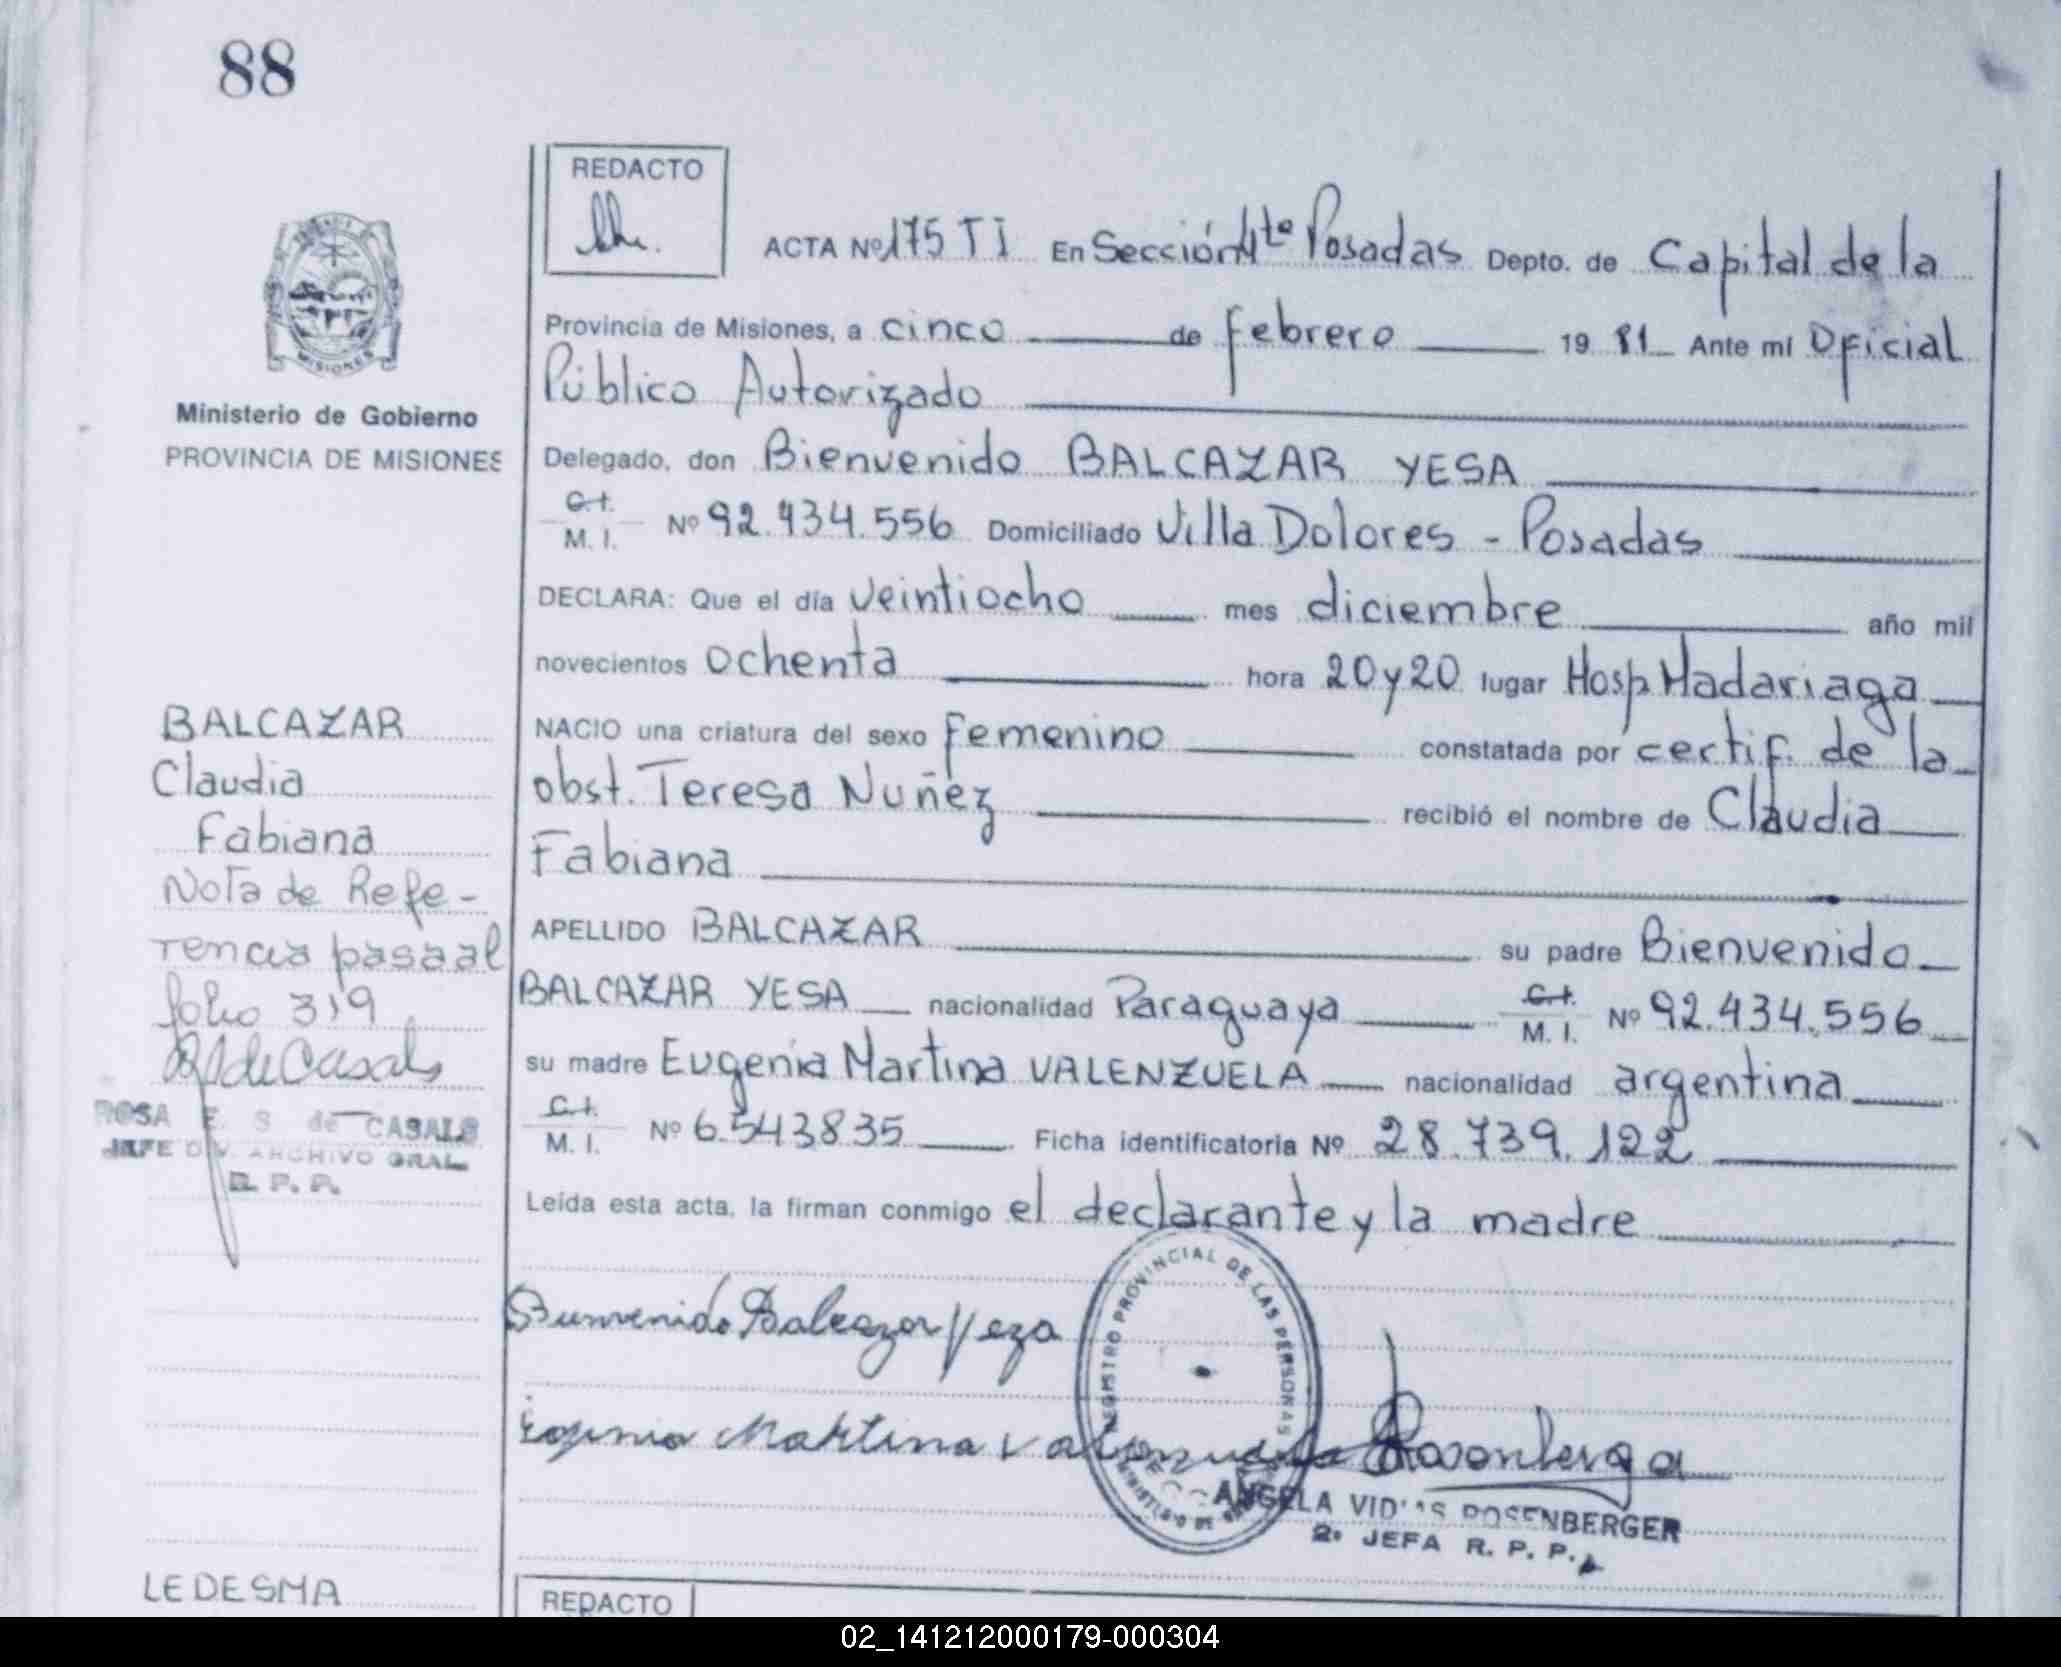 88
REDACTO
ACTA Nº 175 T I En Sección 4ta Posadas Depto. de Capital de la
Provincia de Misiones, a cinco de febrero 19 81 Ante mi Oficial
Público Autorizado
Delegado, don Bienvenido BALCAZAR YESA
C.I.
M. I. Nº 92.434.556 Domiciliado Villa Dolores - Posadas
DECLARA: Que el día veintiocho mes diciembre año mil
novecientos ochenta hora 20 y 20 lugar Hosp Madariaga
NACIO una criatura del sexo femenino constatada por certif. de la
obst. Teresa Nuñez recibió el nombre de Claudia
Fabiana
APELLIDO BALCAZAR su padre Bienvenido
BALCAZAR YESA nacionalidad Paraguaya C.I. M. I. Nº 92.434.556
su madre Eugenia Martina VALENZUELA nacionalidad argentina
C.I.
M. I. Nº 6.543835 Ficha identificatoria Nº 28.739.122
Leída esta acta, la firman conmigo el declarante y la madre
MISIONES
Ministerio de Gobierno
PROVINCIA DE MISIONES
BALCAZAR
Claudia
Fabiana
Nota de Refe-
rencia pasa al
folio 319
ROSA E. S de CASALS
JEFE DIV. ARCHIVO GRAL.
R. P. P.
Bienvenido Balcazar Yeza
Eugenia Martina Valenzuela
REGISTRO PROVINCIAL DE LAS PERSONAS
Rosenberger
ANGELA VID
ROSENBERGER
2º JEFA R. P. P.
LEDESMA
REDACTO
02_141212000179-000304